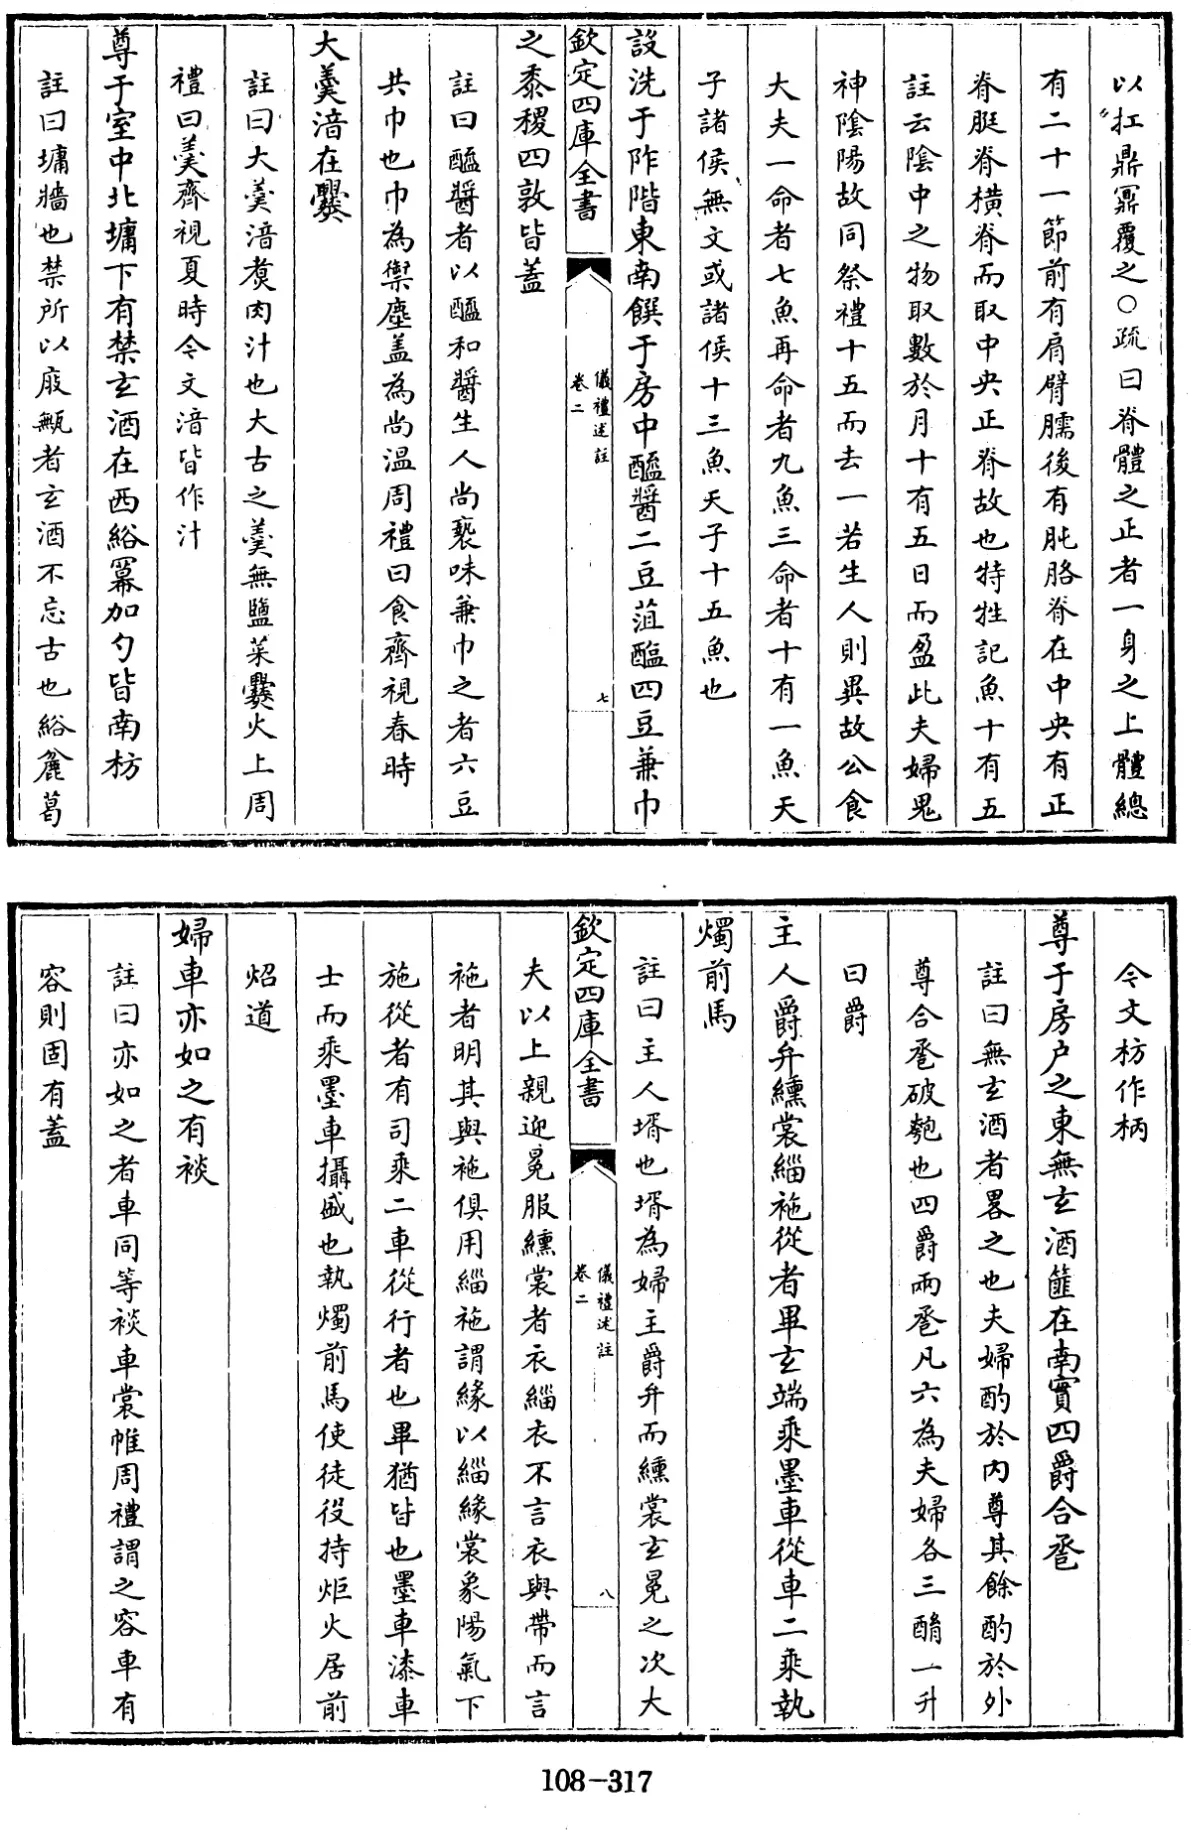 以扛鼎鼏覆之○疏曰脊體之正者一身之上體總
有二十一節前有肩臂臑後有肫胳脊在中央有正
脊脡脊橫脊而取中央正脊故也特牲記魚十有五
註云陰中之物取數於月十有五日而盈此夫婦鬼
神陰陽故同祭禮十五而去一若生人則異故公食
大夫一命者七魚再命者九魚三命者十有一魚天
子諸侯無文或諸侯十三魚天子十五魚也
設洗于阼階東南饌于房中醯醬二豆菹醢四豆兼巾
欽定四庫全書
儀禮述註
卷二
七
之黍稷四敦皆蓋
註曰醯醬者以醯和醬生人尚褻味兼巾之者六豆
共巾也巾為禦塵盖為尚温周禮曰食齊視春時
大羹湆在爨
註曰大羹湆煑肉汁也大古之羹無鹽菜爨火上周
禮曰羹齊視夏時今文湆皆作汁
尊于室中北墉下有禁玄酒在西綌冪加勺皆南枋
註曰墉牆也禁所以庪甒者玄酒不忘古也綌麄葛
今文枋作柄
尊于房户之東無玄酒篚在南實四爵合卺
註曰無玄酒者畧之也夫婦酌於内尊其餘酌於外
尊合卺破匏也四爵兩卺凡六為夫婦各三酳一升
曰爵
主人爵弁纁裳緇袘從者畢玄端乘墨車從車二乘執
燭前馬
註曰主人壻也壻為婦主爵弁而纁裳玄冕之次大
欽定四庫全書
儀禮述註
卷二
八
夫以上親迎冕服纁裳者衣緇衣不言衣與帶而言
袘者明其與袘俱用緇袘謂緣以緇緣裳象陽氣下
施從者有司乘二車從行者也畢猶皆也墨車漆車
士而乘墨車攝盛也執燭前馬使徒役持炬火居前
炤道
婦車亦如之有裧
註曰亦如之者車同等裧車裳帷周禮謂之容車有
容則固有蓋
108-317